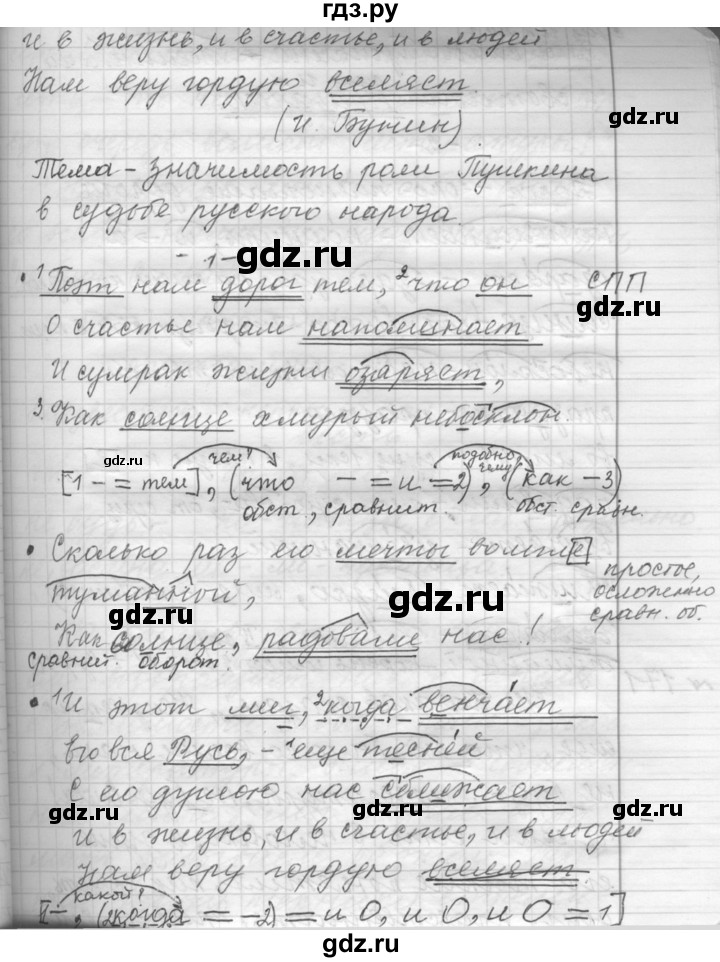 гдз.ру
и в жизнь, и в счастье, и в людей
Нам веру гордую вселяет.
(И. Бунин)
Тема – значимость роли Пушкина
в судьбе русского народа.
- 1 -
• 1 Поэт нам дорог тем, 2 что он СПП
О счастье нам напоминает
И сумрак жизни озаряет,
3. Как солнце хмурый небосклон.
чем? подобно чему?
[1 - = тем], (что - = и = 2), (как - 3)
обст., сравнит. обст. сравн.
• Сколько раз его мечты в мгле
туманной, простое, осложнено сравн. об.
Как солнце, радовали нас!
сравнит. оборот.
• 1 И этот миг, 2 когда венчает
его вся Русь, - 1 еще тесней
С его душою нас сближает
и в жизнь, и в счастье, и в людей
Нам веру гордую вселяет.
какой?
[ - , (2 когда = - 2) = и О, и О, и О = 1]
gdz.ru
gdz.ru
gdz.ru
gdz.ru
gdz.ru
gdz.ru
gdz.ru
gdz.ru
gdz.ru
gdz.ru
gdz.ru
gdz.ru
gdz.ru